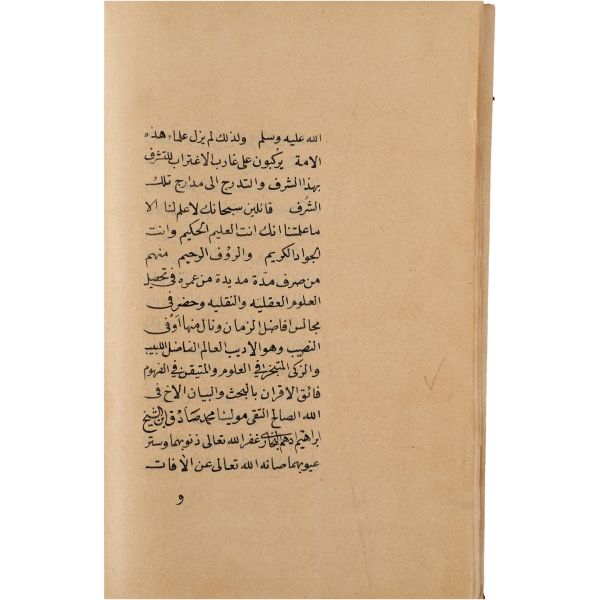 الله عليه وسلم ولذلك لم يزل علماء هذه
الامة يركبون على غارب الاغتراب للتشرف
بهذا الشرف والتدرج الى مدارج تلك
الشرف قائلين سبحانك لا علم لنا الا
ما علمتنا انك انت العليم الحكيم وانت
الجواد الكريم والرؤف الرحيم منهم
من صرف مدة مديدة من عمره في تحصيل
العلوم العقلية والنقلية وحضر في
مجالس افاضل الزمان ونال منها أوفى
النصيب وهو الاديب العالم الفاضل اللبيب
والزكى المتبحر في العلوم والمتيقن في الفهوم
فائق الاقران بالبحث والبيان الاخ في
الله الصالح التقى مولينا محمد صادق ابن الشيخ
ابراهيم ادهم غفر الله تعالى ذنوبهما وستر
عيوبهما صانه الله تعالى عن الافات
و